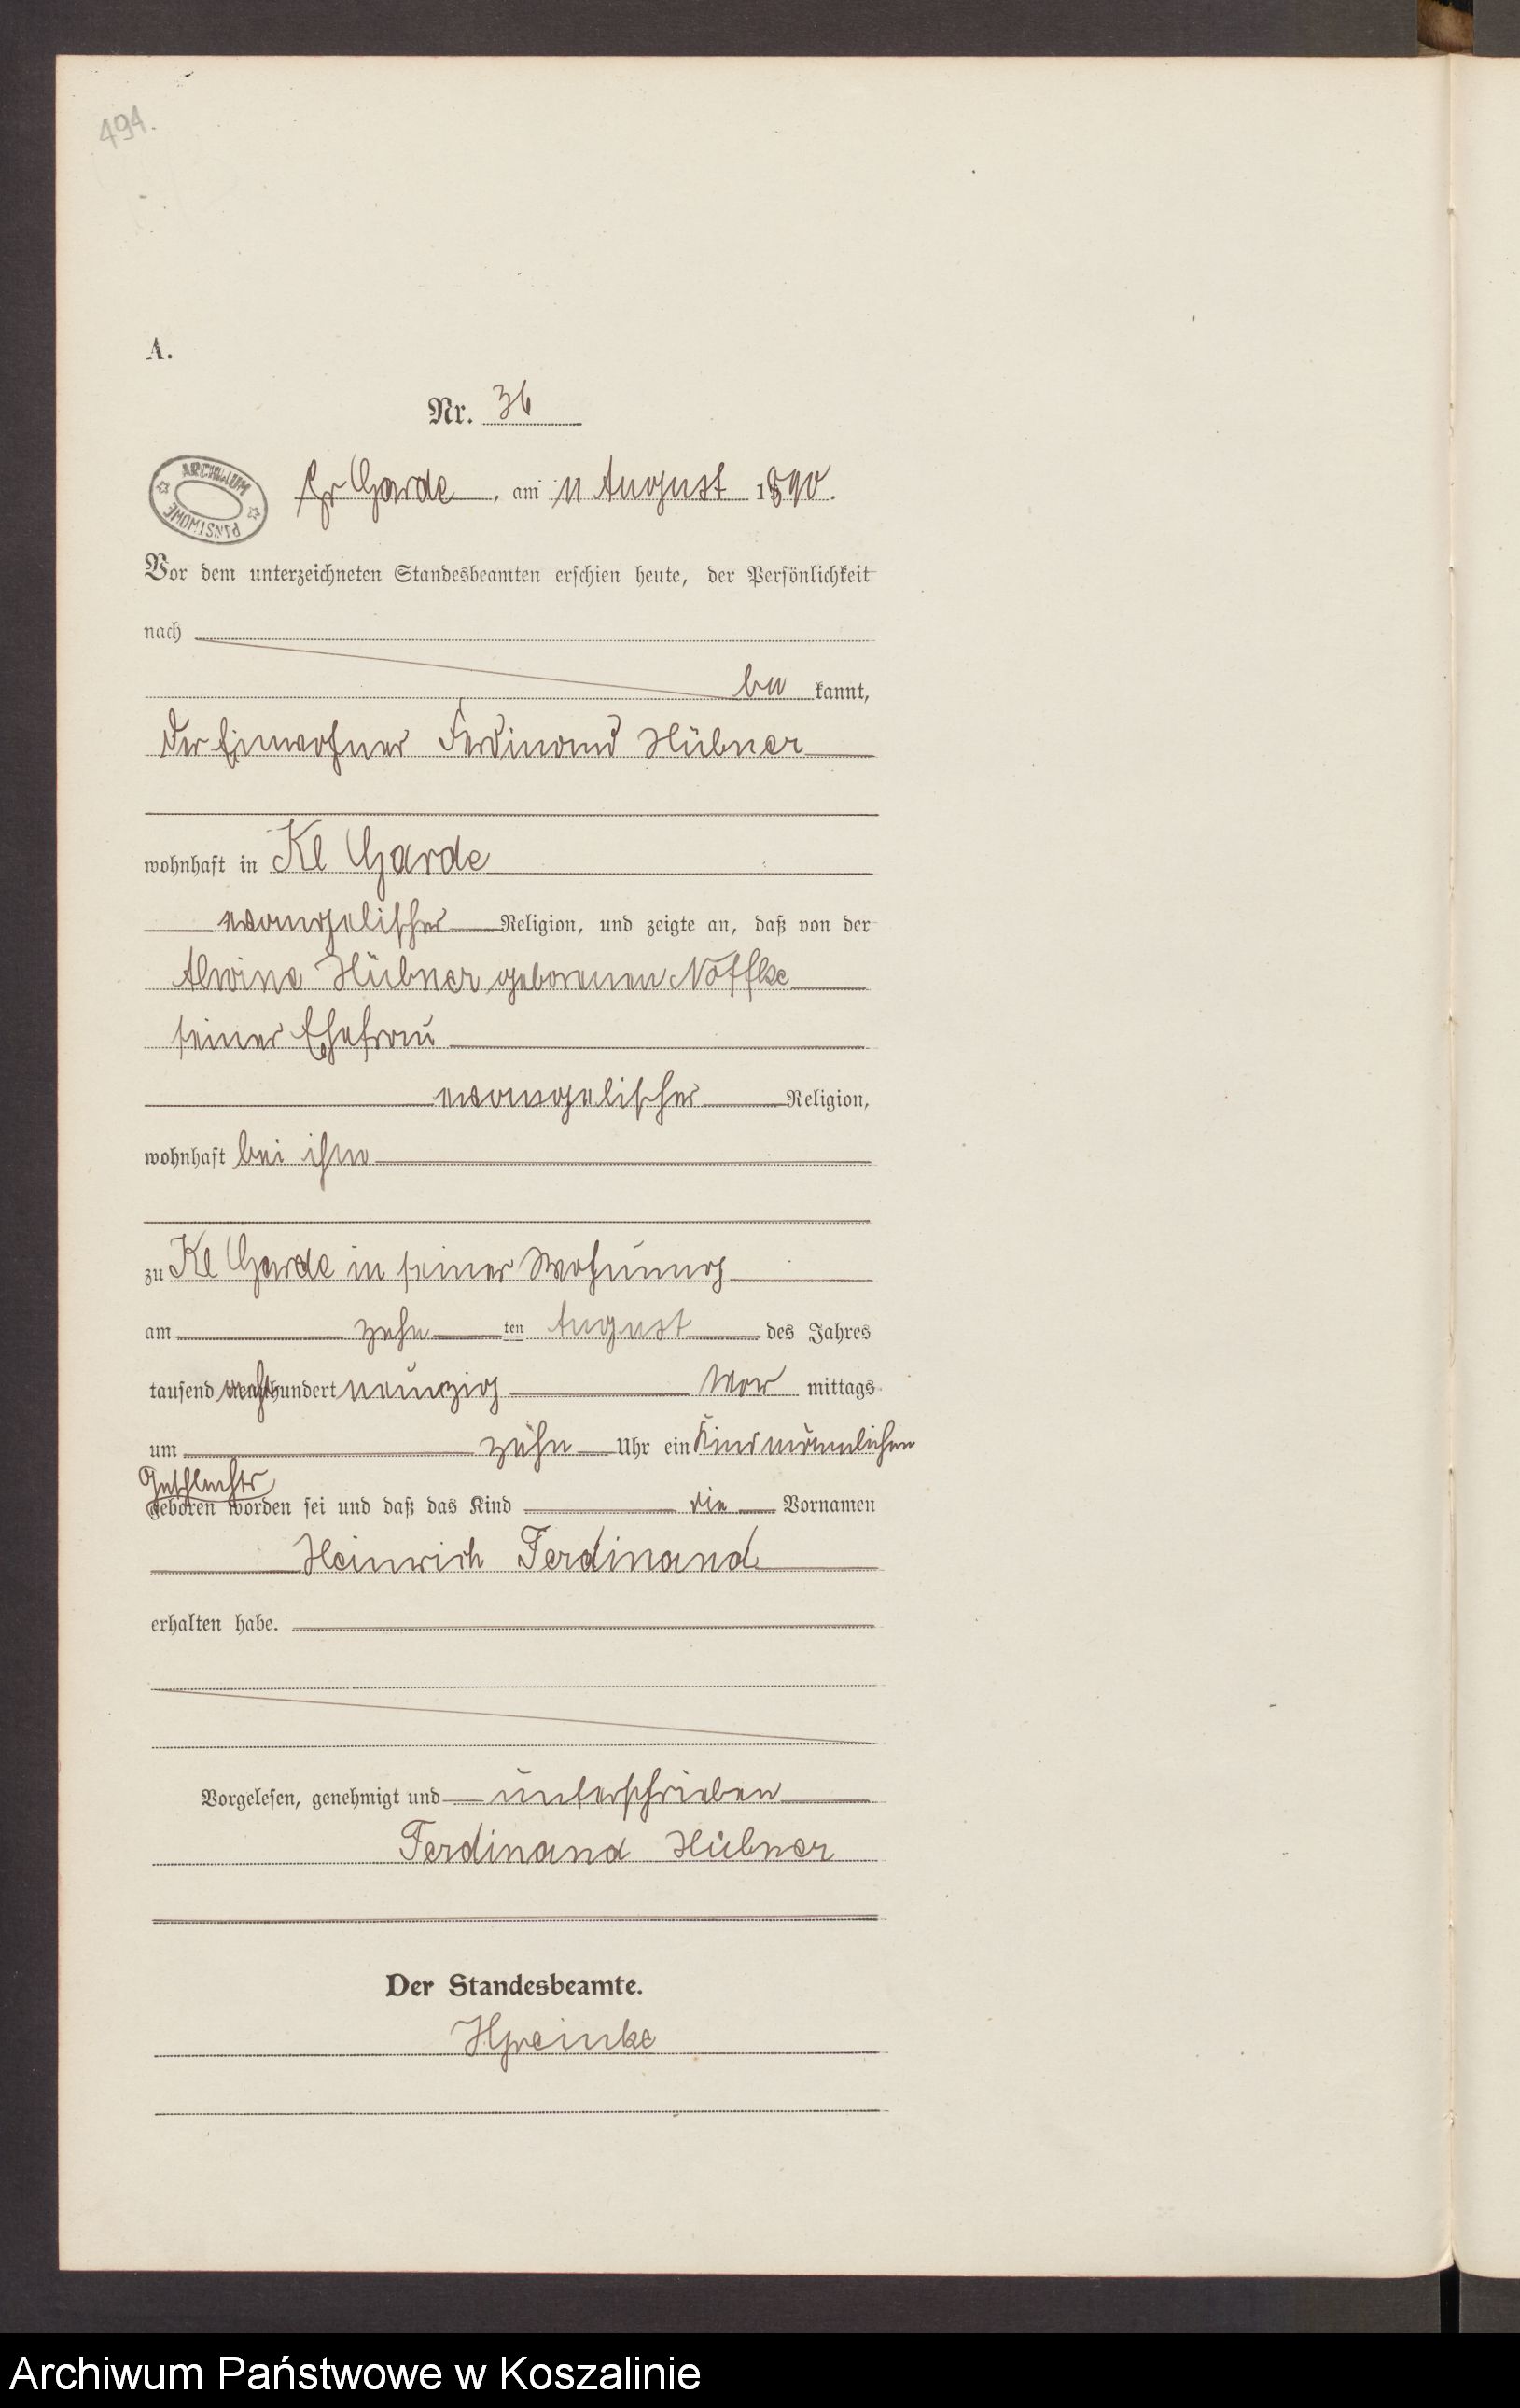 494.
A.
Nr. 36
ARCHIWUM PAŃSTWOWE
Gr Garde, am 11 August 1890.
Vor dem unterzeichneten Standesbeamten erschien heute, der Persönlichkeit
nach
be kannt,
der Einwohner Ferdinand Hübner
wohnhaft in Kl Garde
evangelischer Religion, und zeigte an, daß von der
Alwine Hübner geborenen Noffke
seiner Ehefrau
evangelischer Religion,
wohnhaft bei ihm
zu Kl Garde in seiner Wohnung
am zehn ten August des Jahres
tausend achthundert neunzig Vor mittags
um zehn Uhr ein Kind männlichen
Geschlechts
geboren worden sei und daß das Kind die Vornamen
Heinrich Ferdinand
erhalten habe.
Vorgelesen, genehmigt und unterschrieben
Ferdinand Hübner
Der Standesbeamte.
Archiwum Państwowe w Koszalinie